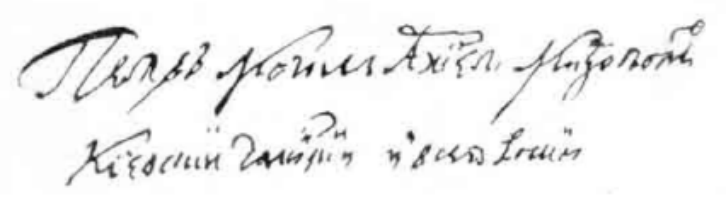 Петръ Могила Архїеп Митрополи
Кїевскїй Галицкїй и всея Росїи